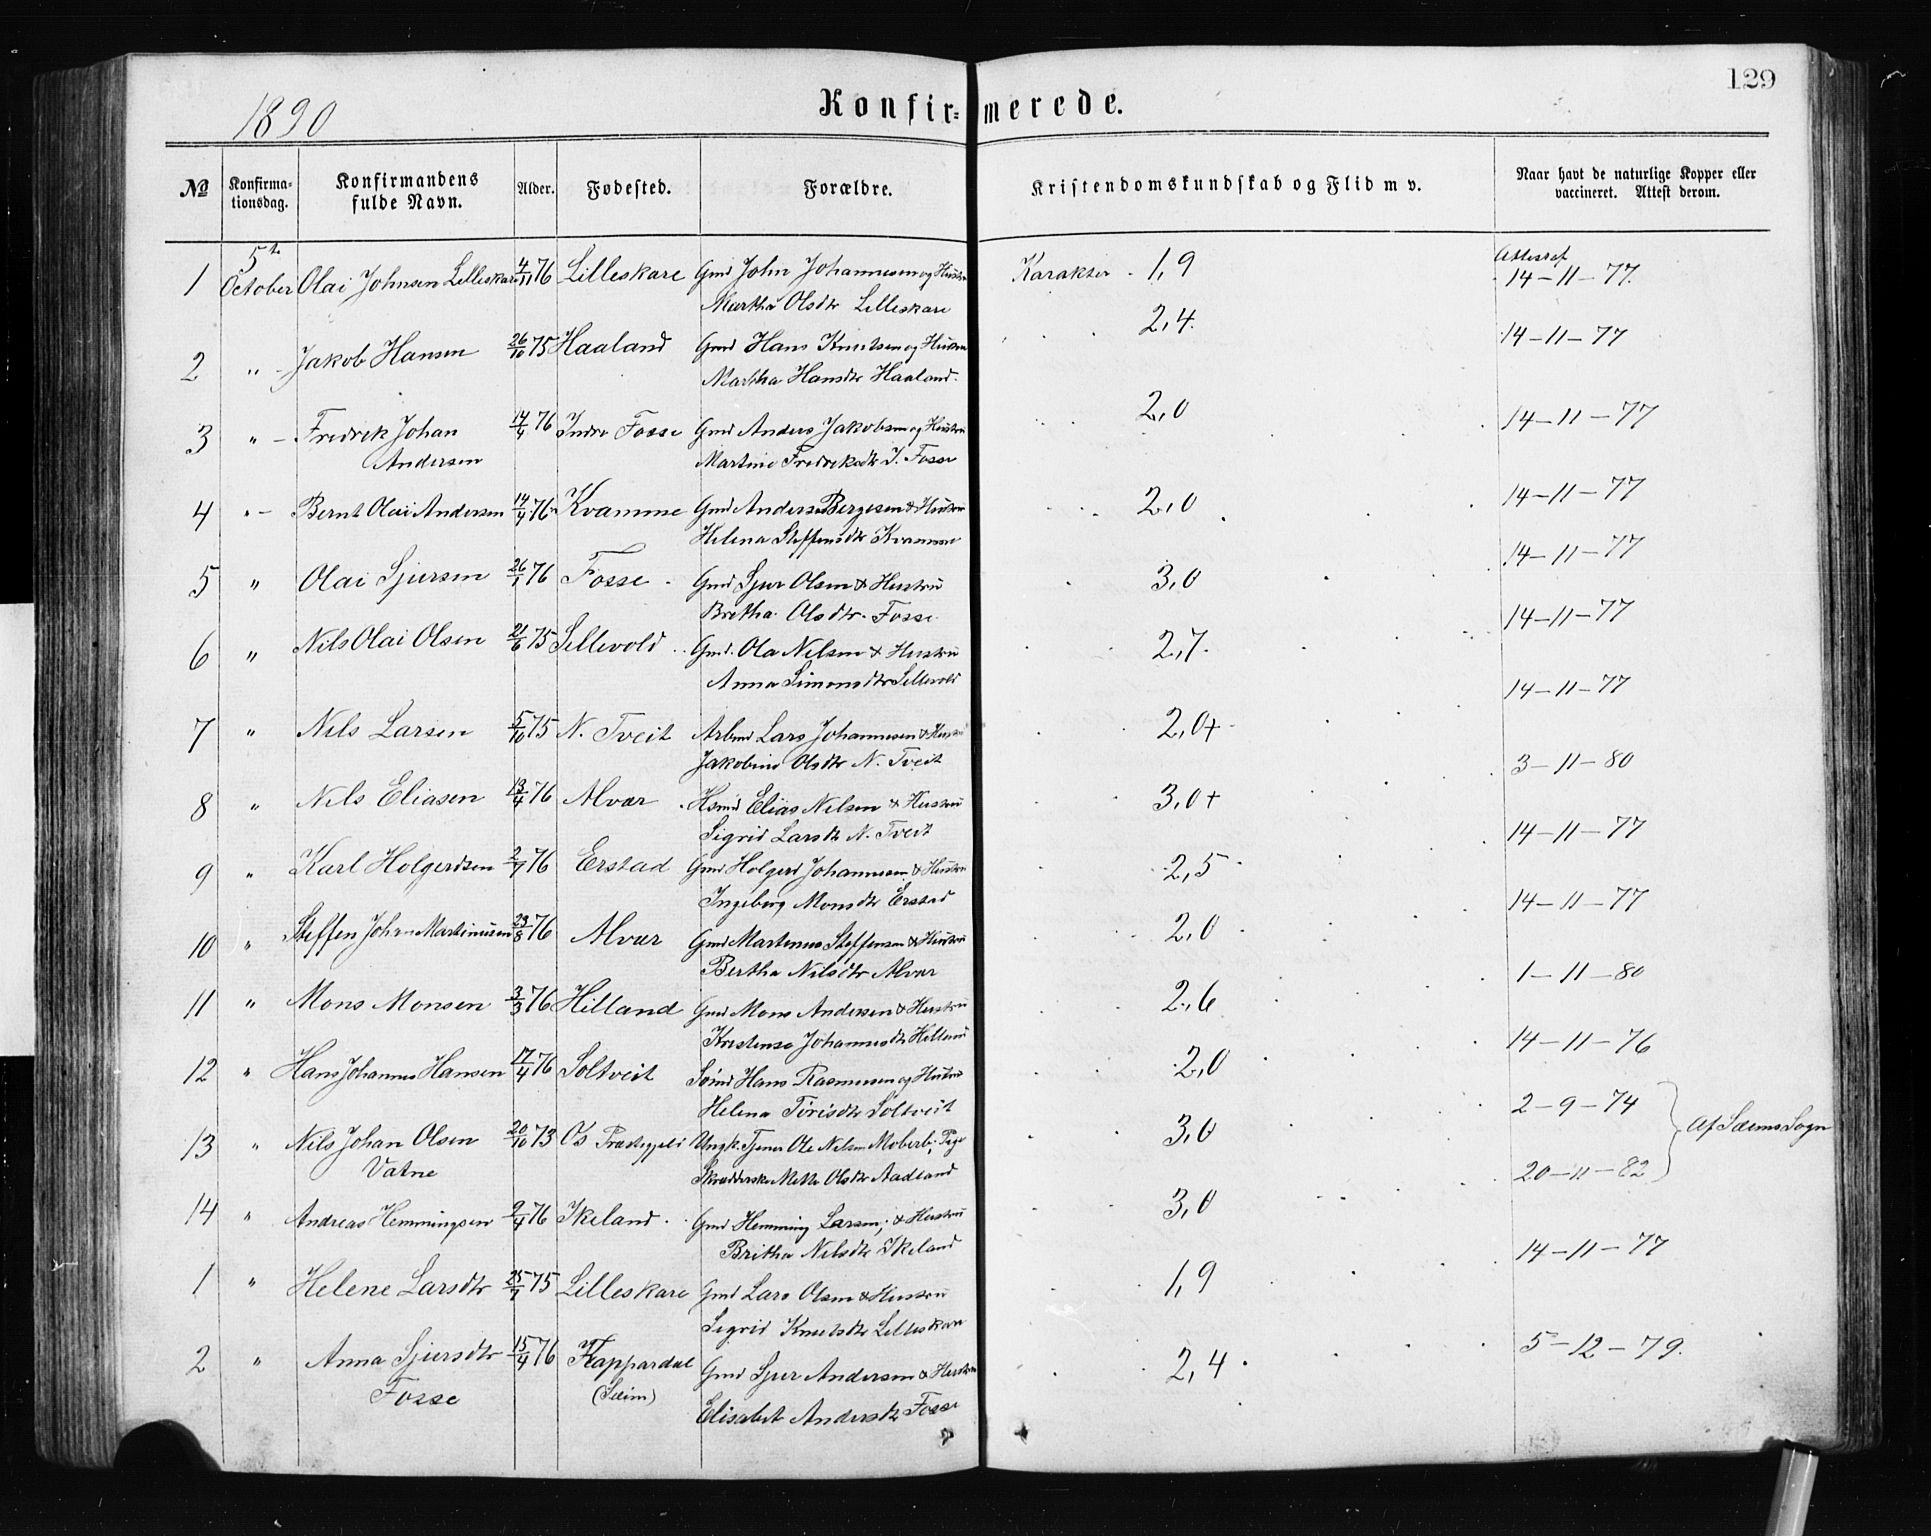 129
1890
Konfir= merede.
№ Konfirma-tionsdag. Konfirmandens fulde Navn. Alder. Fødested. Forældre. Kristendomskundskab og Flid m v. Naar havt de naturlige Kopper eller vaccineret. Attest derom.
1 5te October Olai Johnsen Lilleskare 4/11 76 Lilleskare Gmd John Johannesen og Hustru Karakter 1,9 Attest af 14-11-77.
Martha Olsdtr Lilleskare
2 " Jakob Hansen 26/10 75 Haaland Gmd Hans Knutsen og Hustru 2,4. 14-11-77
Martha Hansdtr Haaland.
3 " Fredrek Johan 14/4 76 Indre Fosse Gmd Anders Jakobsen og Hustru 2,0 14-11-77
Andersen Martine Fredreksdtr I. Fosse
4 " Bernt Olai Andersen 14/4 76 Kvamme Gmd Anders Bergesen & Hustru 2,0 14-11-77
Helena Steffensdtr Kvamme
5 " Olai Sjursen 26/1 76 Fosse Gmd Sjur Olsen & Hustru 3,0 14-11-77
Bretha Olsdtr. Fosse
6 " Nils Olai Olsen 21/6 75 Sellevold Gmd. Ola Nilsen & Hustru 2,7. 14-11-77
Anna Simonsdtr Sellevold
7 " Nils Larsen 5/10 75 N. Tveit Arbmd Lars Johannesen & Hustru 2,0+ 14-11-77
Jakobine Olsdtr N. Tveit
8 " Nils Eliasen 13/4 76 Alvær Hsmd Elias Nilsen & Hustru 3,0+ 3-11-80
Sigrid Larsdtr N. Tveit
9 " Karl Holgerdsen 2/7 76 Erstad Gmd Holgerd Johannesen & Hustru 2,5 14-11-77
Ingeborg Monsdtr Erstad
10 " Steffen Johan Martinusen 23/8 76 Alvær Gmd Martenus Steffensen & Hustru 2,0 14-11-77
Bertha Nilsdtr Alvær
11 " Mons Monsen 3/3 76 Hilland Gmd Mons Andersen & Hustru 2,6 1-11-80
Kristense Johannesdtr Hilland
12 " Hans Johannes Hansen 17/4 76 Soltveit Hans Rasmusen og Hustru 2,0 14-11-76
Helena Soltveit
13 " Nils Johan Olsen 20/10 73 Os Præstegjeld Ungk. Tjener Ole Nilsen Moberb; Pige 3,0 2-9-74 Af Sæims Sogn
Vatne Mette Olsdtr Aadland
14 " Andreas Hemmingsen 2/4 76 Ikeland Gmd Hemming Larsen; & Hustru 3,0 20-11-82
Britha Nilsdtr Ikeland
1 " Helene Larsdtr 25/7 75 Lilleskare Gmd Lars Olsen & Hustru 1,9 14-11-77
Sigrid Knutsdtr Lilleskare
2 " Anna Sjursdtr 15/4 76 Flappardal Gmd Sjur Andersen & Hustru 2,4 5-12-79.
Fosse (Sæim) Elisabet Andersdtr Fosse